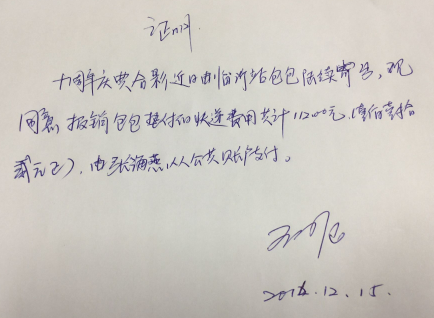 证明
十周年庆典合影近日由临沂站包包陆续寄出，现
同意报销包包垫付的快递费用共计112.00元（壹佰壹拾
贰元正），由张海燕从公共账户支付。
12.15.